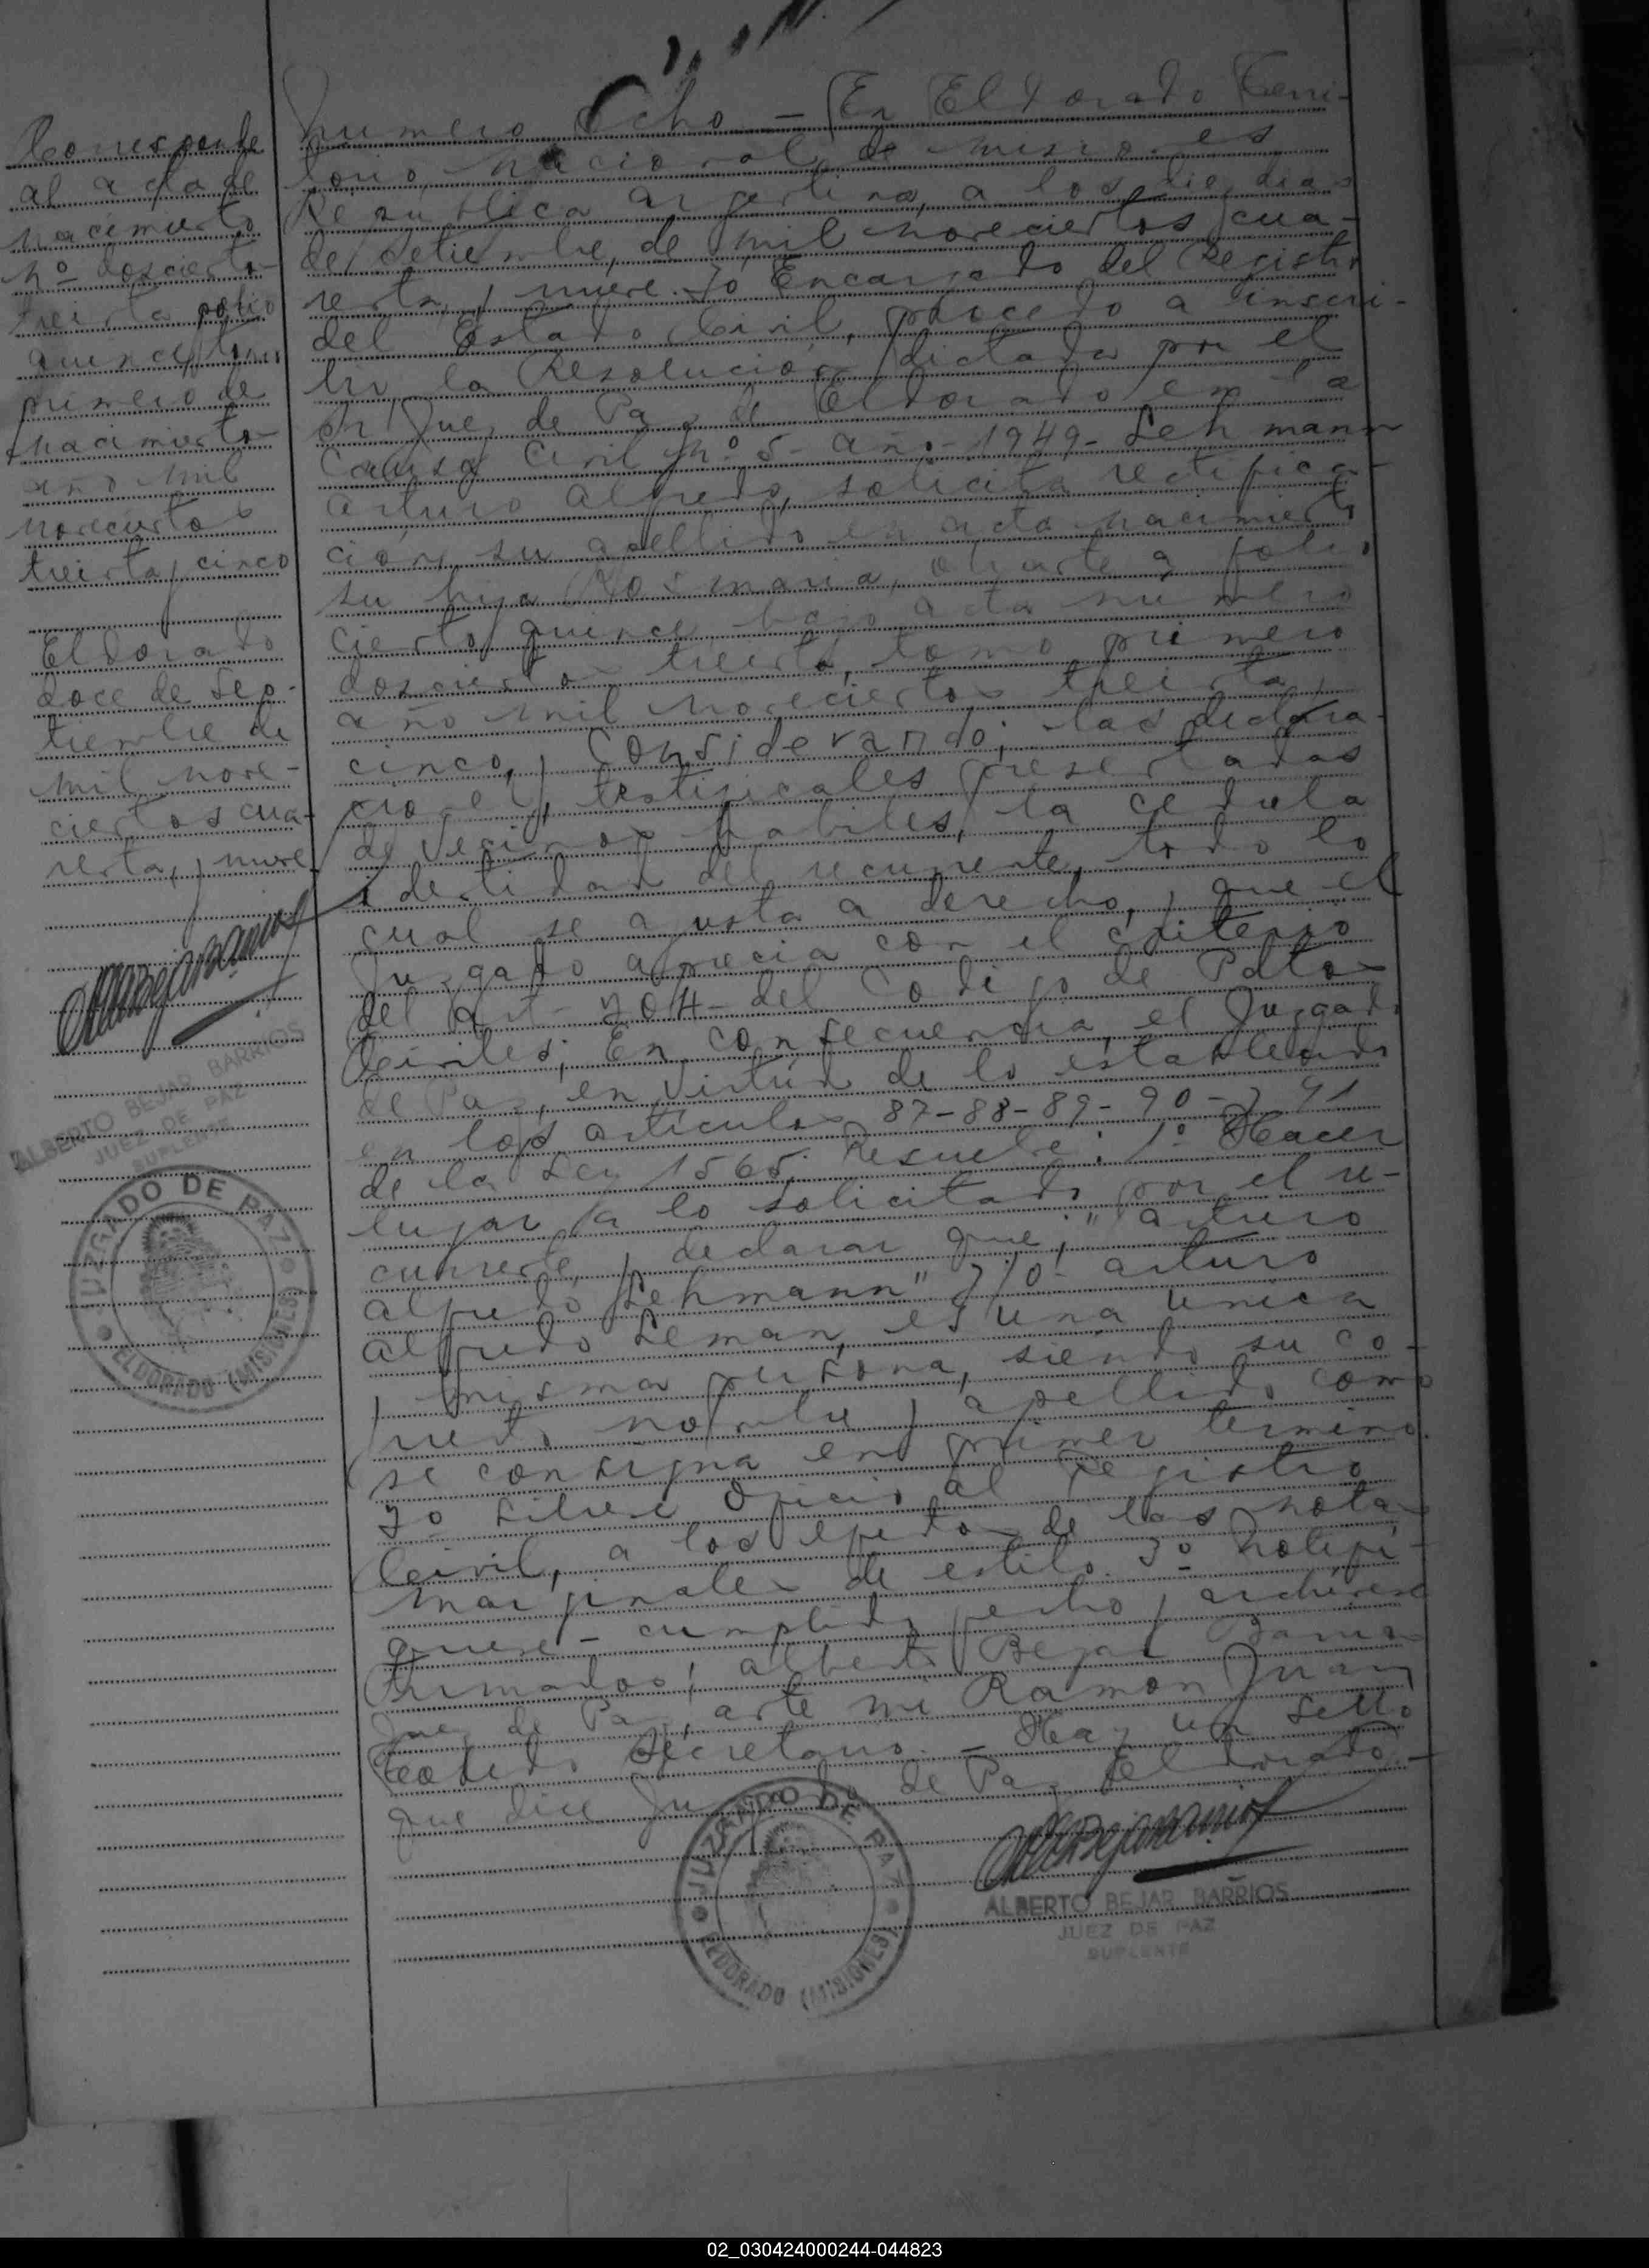 Corresponde
al acta de
nacimiento
nº doscientos
treinta folio
quince tomo
primero de
nacimiento
año mil
novecientos
treinta y cinco
Eldorado
doce de Sep-
tiembre de
mil nove-
cientos cua-
renta y nueve
ALBERTO BEJAR BARRIOS
JUEZ DE PAZ
SUPLENTE
JUZGADO DE PAZ
ELDORADO (MISIONES)
Numero Ocho - En Eldorado Terri-
torio nacional de misiones
Republica argentina, a los diez dias
de setiembre, de mil novecientos cua-
renta y nueve. Yo Encargado del Registro
del Estado Civil, procedo a inscri-
bir la Resolución dictada por el
Sr Juez de Paz de Eldorado en la
Causa Civil nº 5- año 1949- Lehmann
arturo alfredo, solicita rectifica-
cion su apellido en acta nacimiento
su hija Rosmaria, obrante a folio
ciento quince bajo acta numero
doscientos treinta, tomo primero
año mil novecientos treinta y
cinco, y Considerando; las declara-
ciones testificales presentadas
de Vecinos habiles, la cedula
identidad del recurrente, todo lo
cual se ajusta a derecho, y que el
Juzgado aprecia con el criterio
del Art- 204- del Codigo de Pdtos
Civiles; En consecuencia, el Juzgado
de Paz, en virtud de lo establecido
en los articulos 87-88-89-90-y 91
de la Ley 1565. Resuelve: 1º Hacer
lugar a lo solicitado por el re-
currente y declarar que; "arturo
alfredo Lehmann" y/o arturo
alfredo Leman, es una unica
y misma persona, siendo su co-
rrecto nombre y apellido como
se consigna en primer termino.
2o Librese Oficio al Registro
Civil, a los efectos de las notas
marginales de estilo. 3º Notifi-
quese - cumplido fecho y archivese
Firmados; alberto Bejar Barrios
Juez de Paz, ante mi Ramon Juan
Secretario. - Hay un sello
que dice Juzgado de Paz Eldorado.-
JUZGADO DE PAZ
ELDORADO (MISIONES)
ALBERTO BEJAR BARRIOS
JUEZ DE PAZ
SUPLENTE
02_030424000244-044823